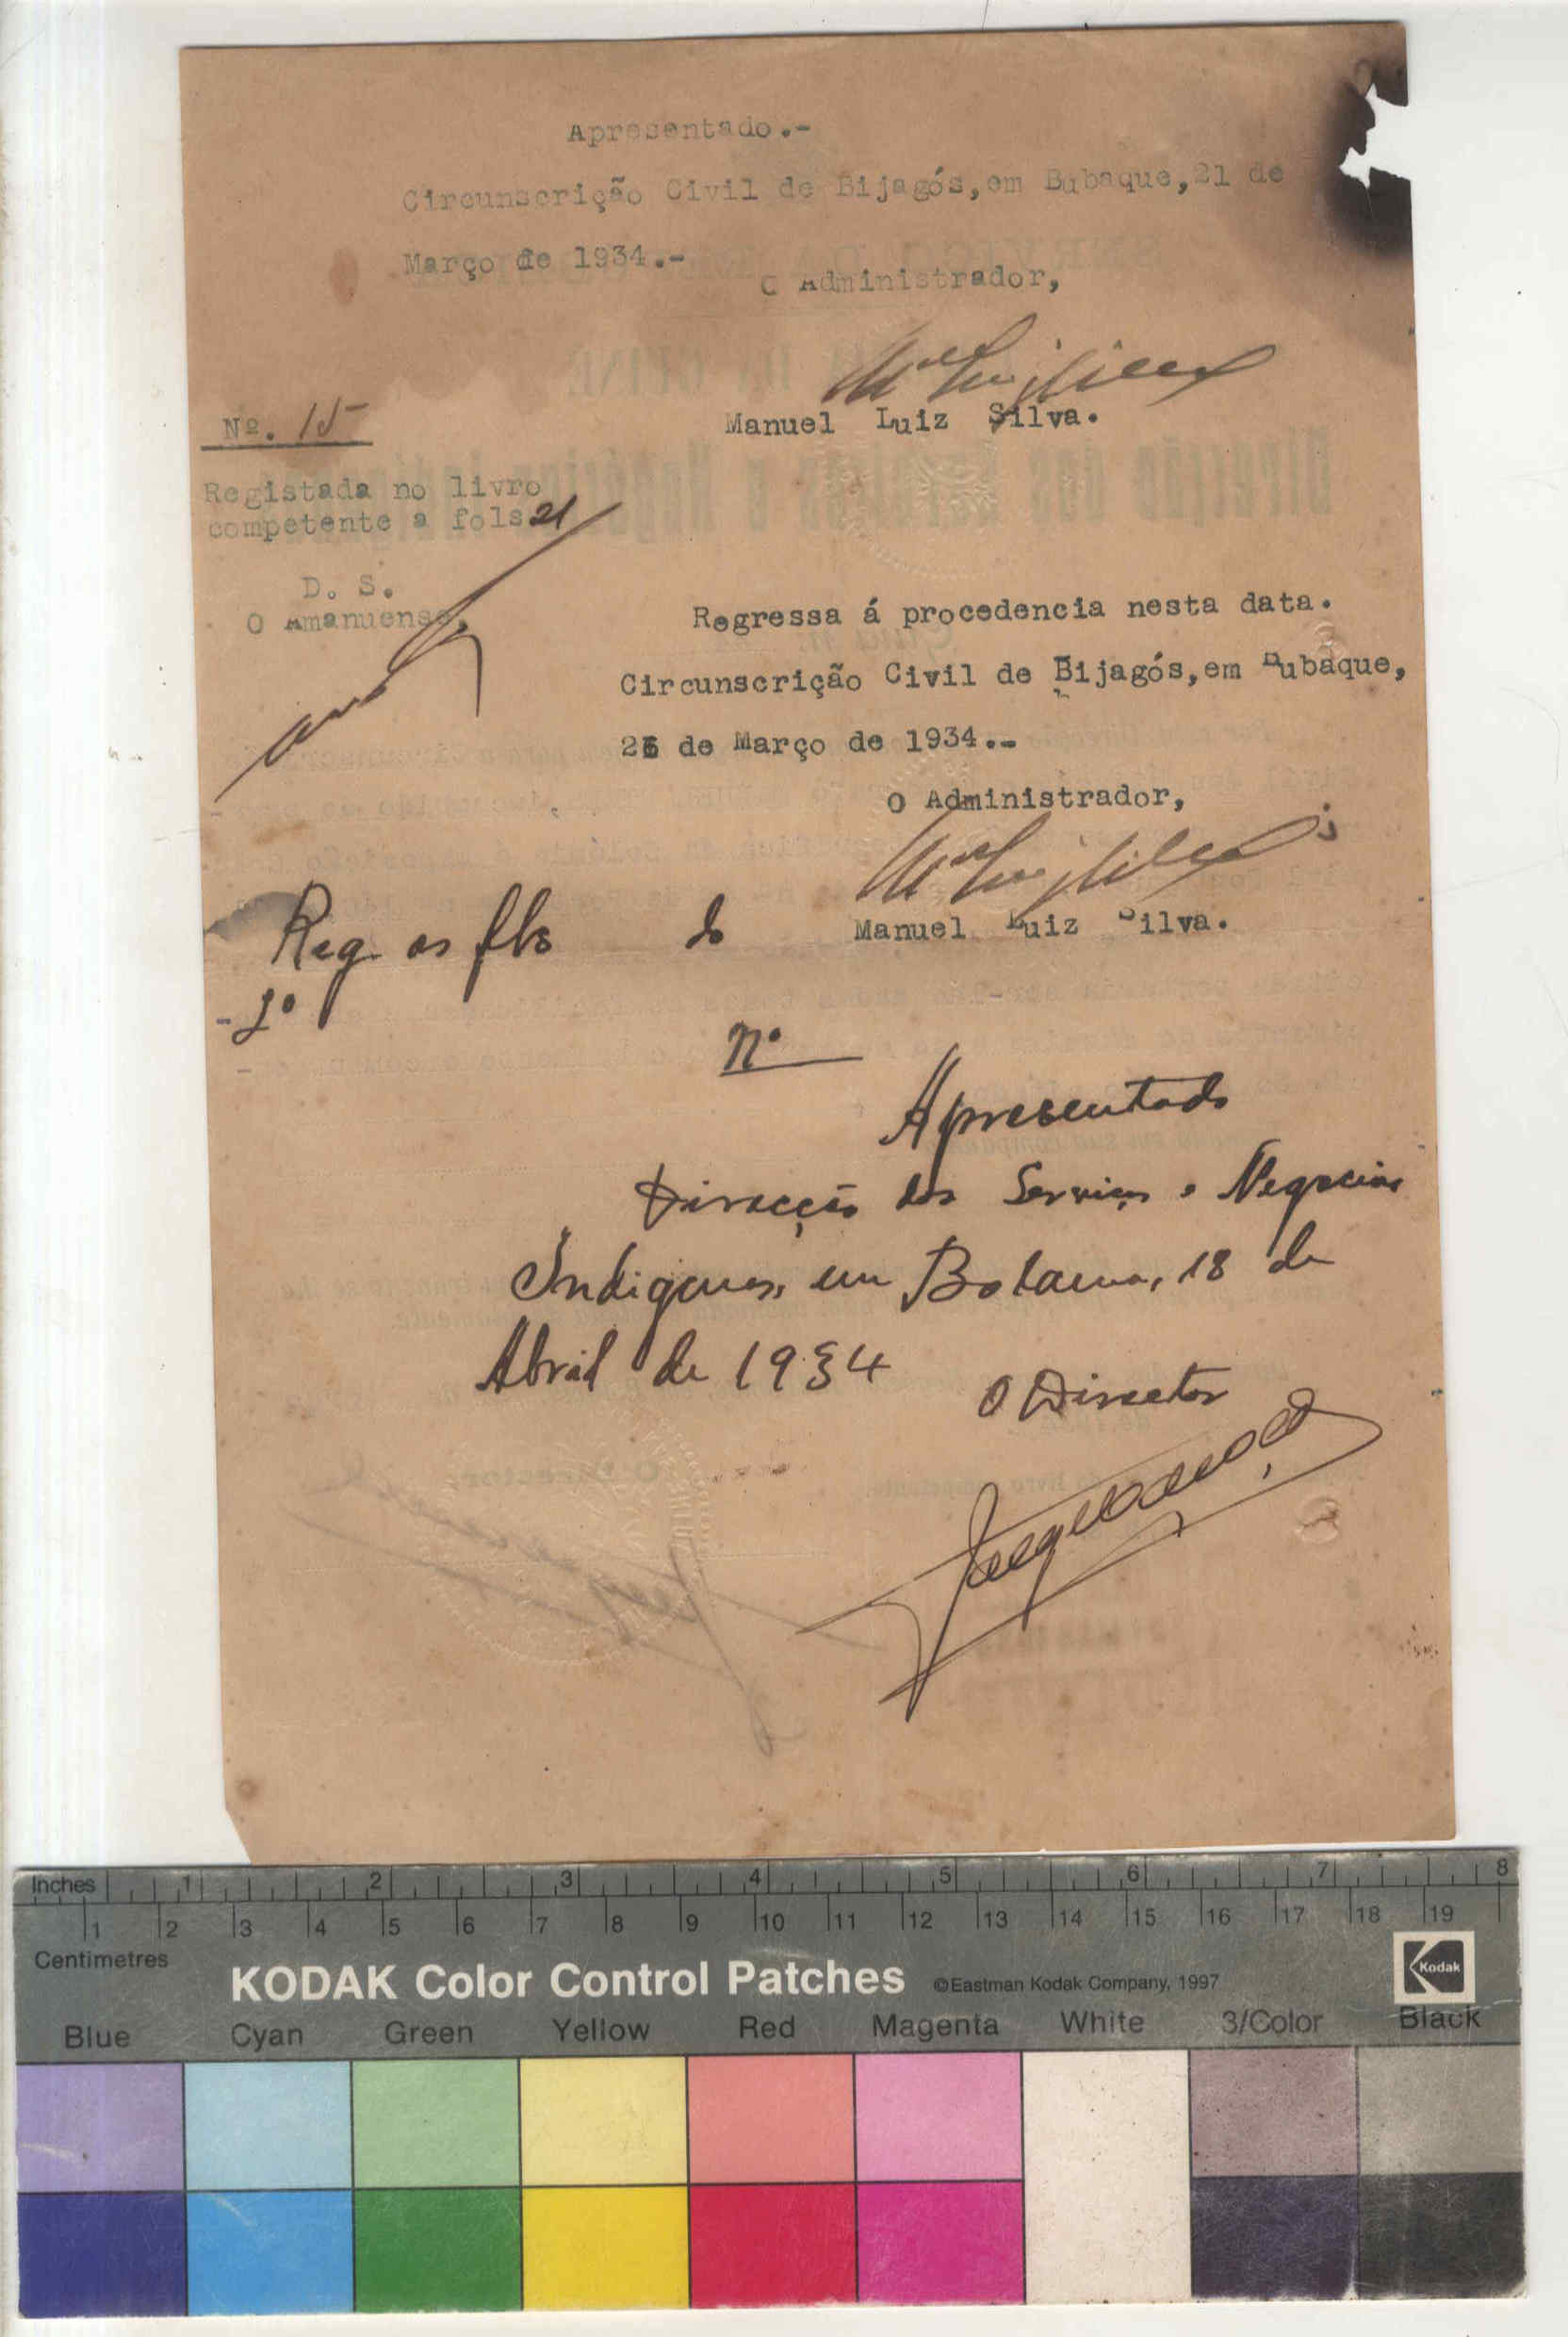 Apresentado.-
Circunscrição Civil de Bijagós,em Bubaque,21 de
Março de 1934.-
O Administrador,
Manuel Luiz Silva.
Nº. 15
Registada no livro
competente a fols 21
D. S.
O Amanuense.
Regressa á procedencia nesta data.
Circunscrição Civil de Bijagós,em Bubaque,
26 de Março de 1934.-
O Administrador,
Manuel Luiz Silva.
Reg. as fls do
Nº
Apresentado
Direcção dos Serviços e Negocios
Indigenas, em Bolama, 18 de
Abril de 1934
O Director
Inches 1 2 3 4 5 6 7 8
1 2 3 4 5 6 7 8 9 10 11 12 13 14 15 16 17 18 19
Centimetres
KODAK Color Control Patches ©Eastman Kodak Company, 1997 Kodak
Blue Cyan Green Yellow Red Magenta White 3/Color Black